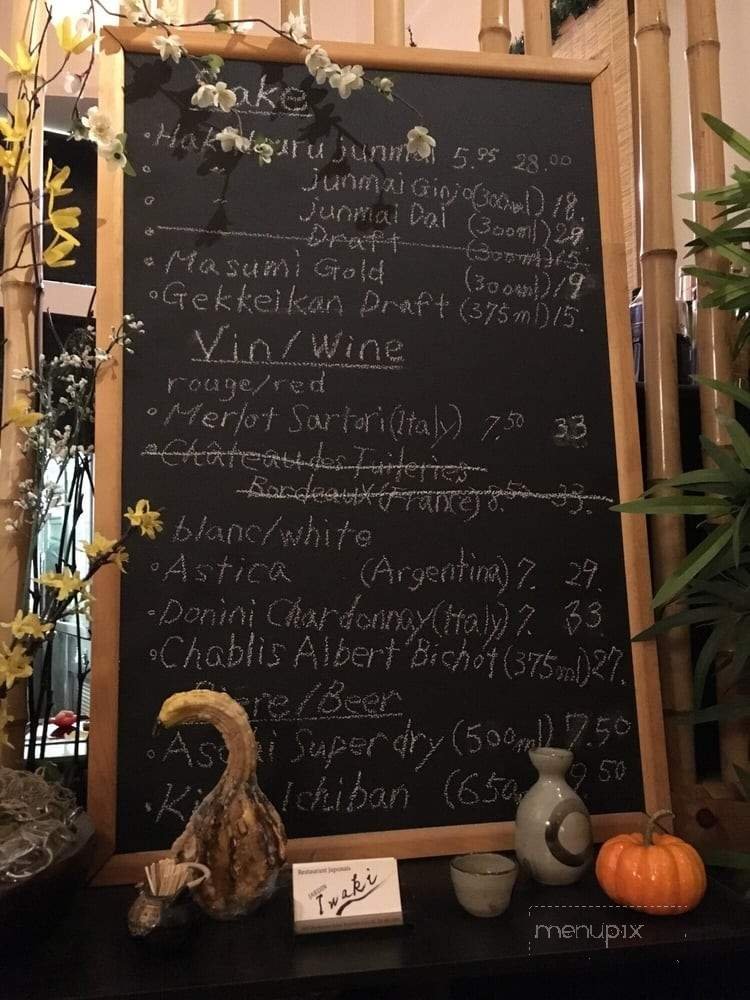 Sake
• Hakutsuru junmai 5.95 28.00
• " junmai Ginjo (300ml) 18.
• " junmai Dai (300ml) 29.
• Draft (300ml) 15.
• Masumi Gold (300ml) 19
• Gekkeikan Draft (375ml) 15.
Vin/Wine
rouge/red
• Merlot Sartori (Italy) 7.50 33
• Château des Tuileries
Bordeaux (France) 8.50 33.
blanc/white
• Astica (Argentina) 7. 29.
• Donini Chardonnay (Italy) 7. 33
• Chablis Albert Bichot (375ml) 27.
Bière/Beer
• Asahi Super dry (500ml) 7.50
• Ki Ichiban (650m 9.50
Restaurant Japonais
JARDIN
Iwaki
menupix